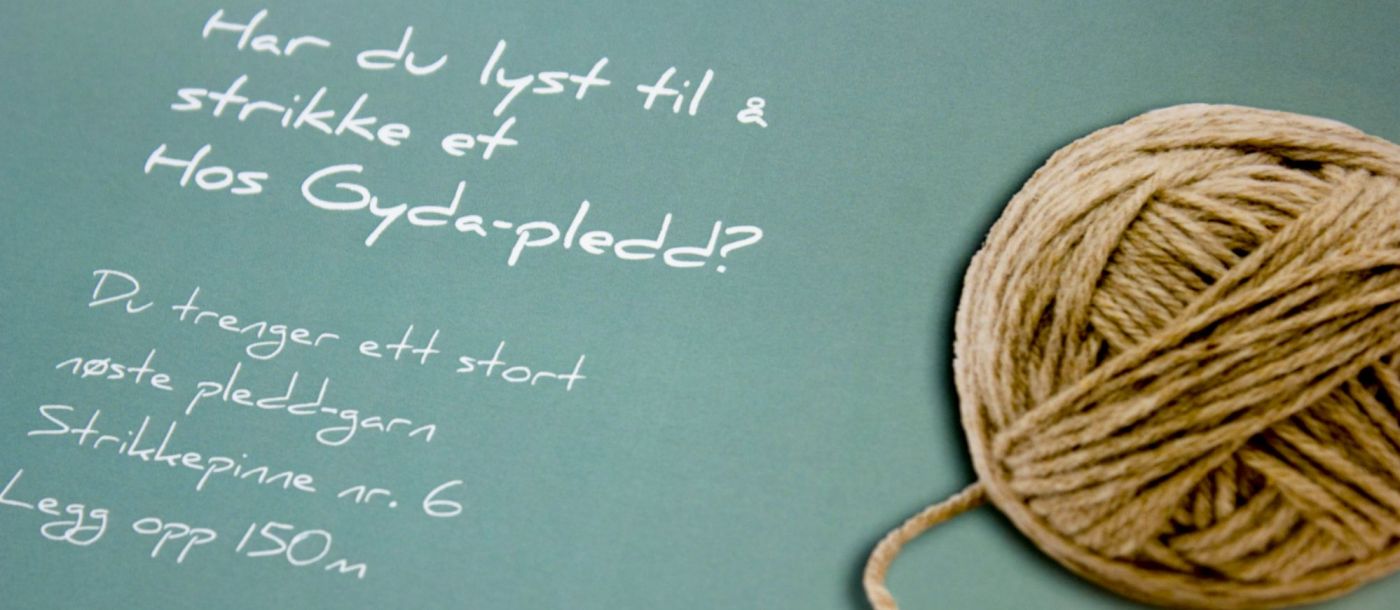 Har du lyst til å
strikke et
Hos Gyda-pledd?
Du trenger ett stort
nøste pledd-garn
Strikkepinne nr. 6
Legg opp 150m